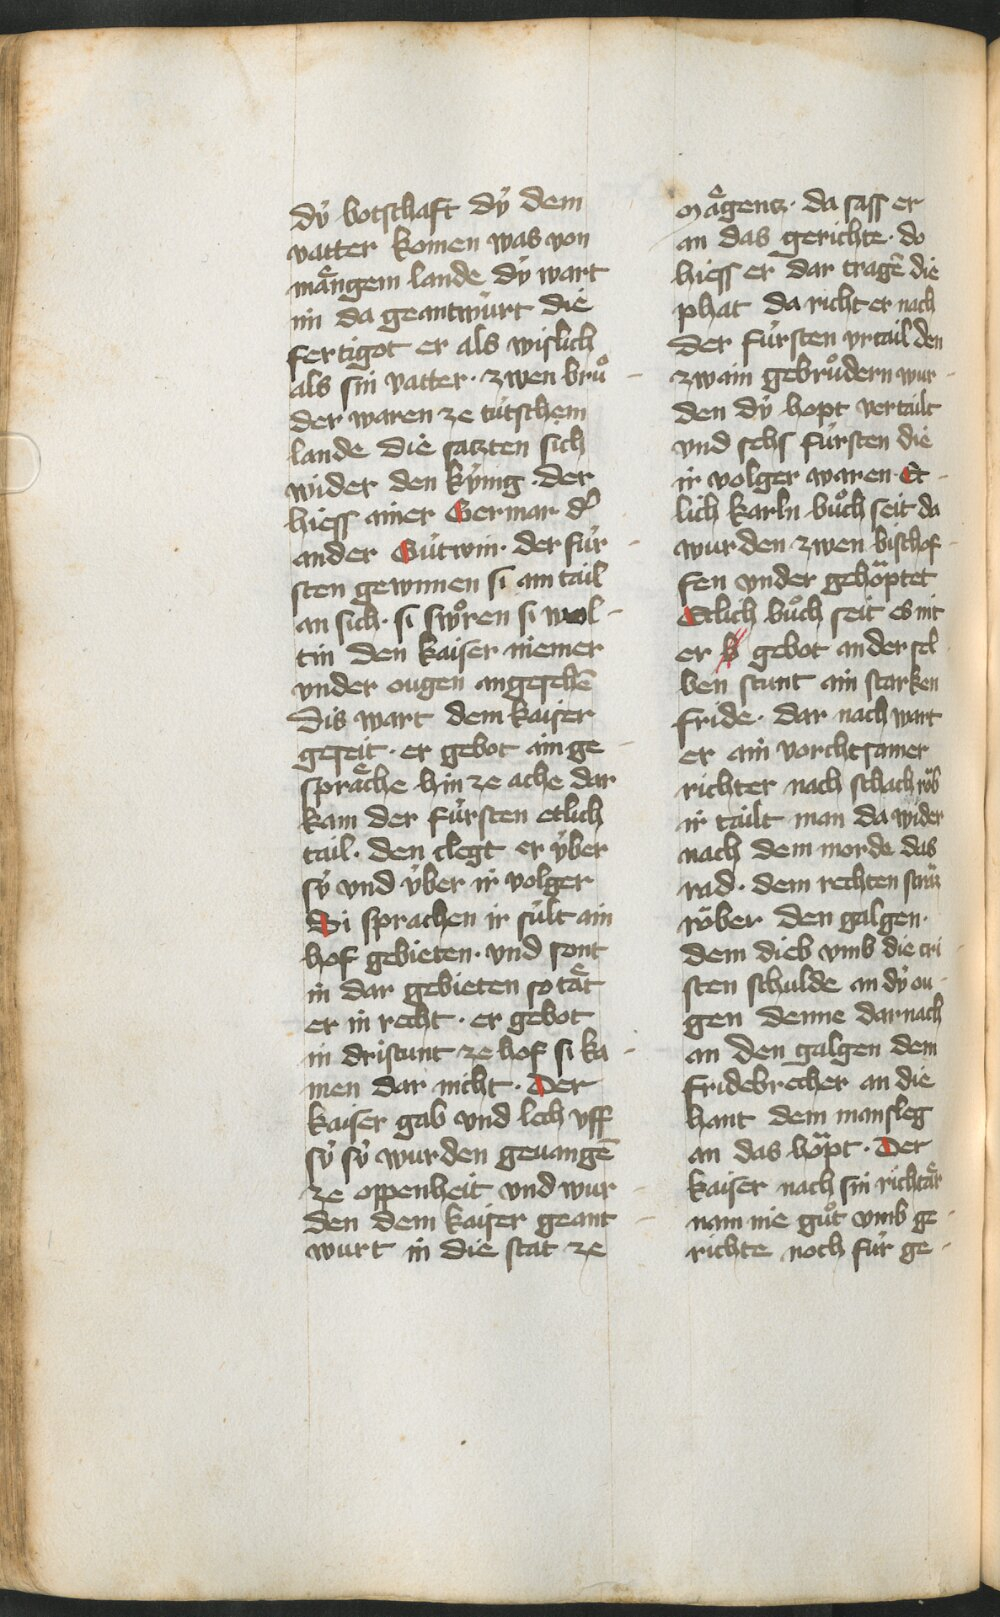 dÿ botschaft dÿ dem
vatter komen was von
mangͤem lande dÿ wart
im da geantwúrt die
fertigot er als wislich
als sin vatter · zwen brů
der waren ze tútschem
lande die satzten sich
wider den kv́nig · der
hiess ainer Germar dˀ
ander Gútwin · der fúr
sten gewunen si ain tail
an sich · si swůren si wol
tin den kaiser niemer
vnder ougen angesehē
Dis wart dem kaiser
geseit · er gebot ain ge
spraͤche hin ze ache dar
kam der fúrsten etlich
tail · den clegt er v́ber
sÿ vnd v́ber ir volger
Si sprachen ir súlt ain
hof gebieten · vnd sont
in dar gebieten so taͤt
er in recht · er gebot
in dristunt ze hof si ka
men dar nicht · Der
kaiser gab vnd lech vff
sÿ sÿ wurden geuangē
ze oppenheit vnd wur
den dem kaiser geant
wurt in die stat ze
Maͤgentz · da sass er
an das gerichte · do
hiess er dar tragē die
phat da richt er nach
der fúrsten vrtail den
zwain gebrůdern wur
den dÿ hopt vertailt
vnd sehs fúrsten die
ir volger waren · Et
lich karln bůch seit da
wurden zwen bischof
fen vnder gehöptet
Etlich bůch seit es nit
er b gebot an der sel
ben stunt ain starken
fride · dar nach wart
er ain vorchtsamer
richter nach schach röb
ir tailt man da wider
nach dem morde das
rad · dem rechten stras
röber den galgen ·
dem dieb vmb die cri
sten schulde an dÿ ou
gen denne darnach
an den galgen dem
fridebrecher an die
hant dem mansleg
an das höpt · Der
kaiser nach sin richtaͤr
nam nie gůt vmb ge
richte noch fúr ge